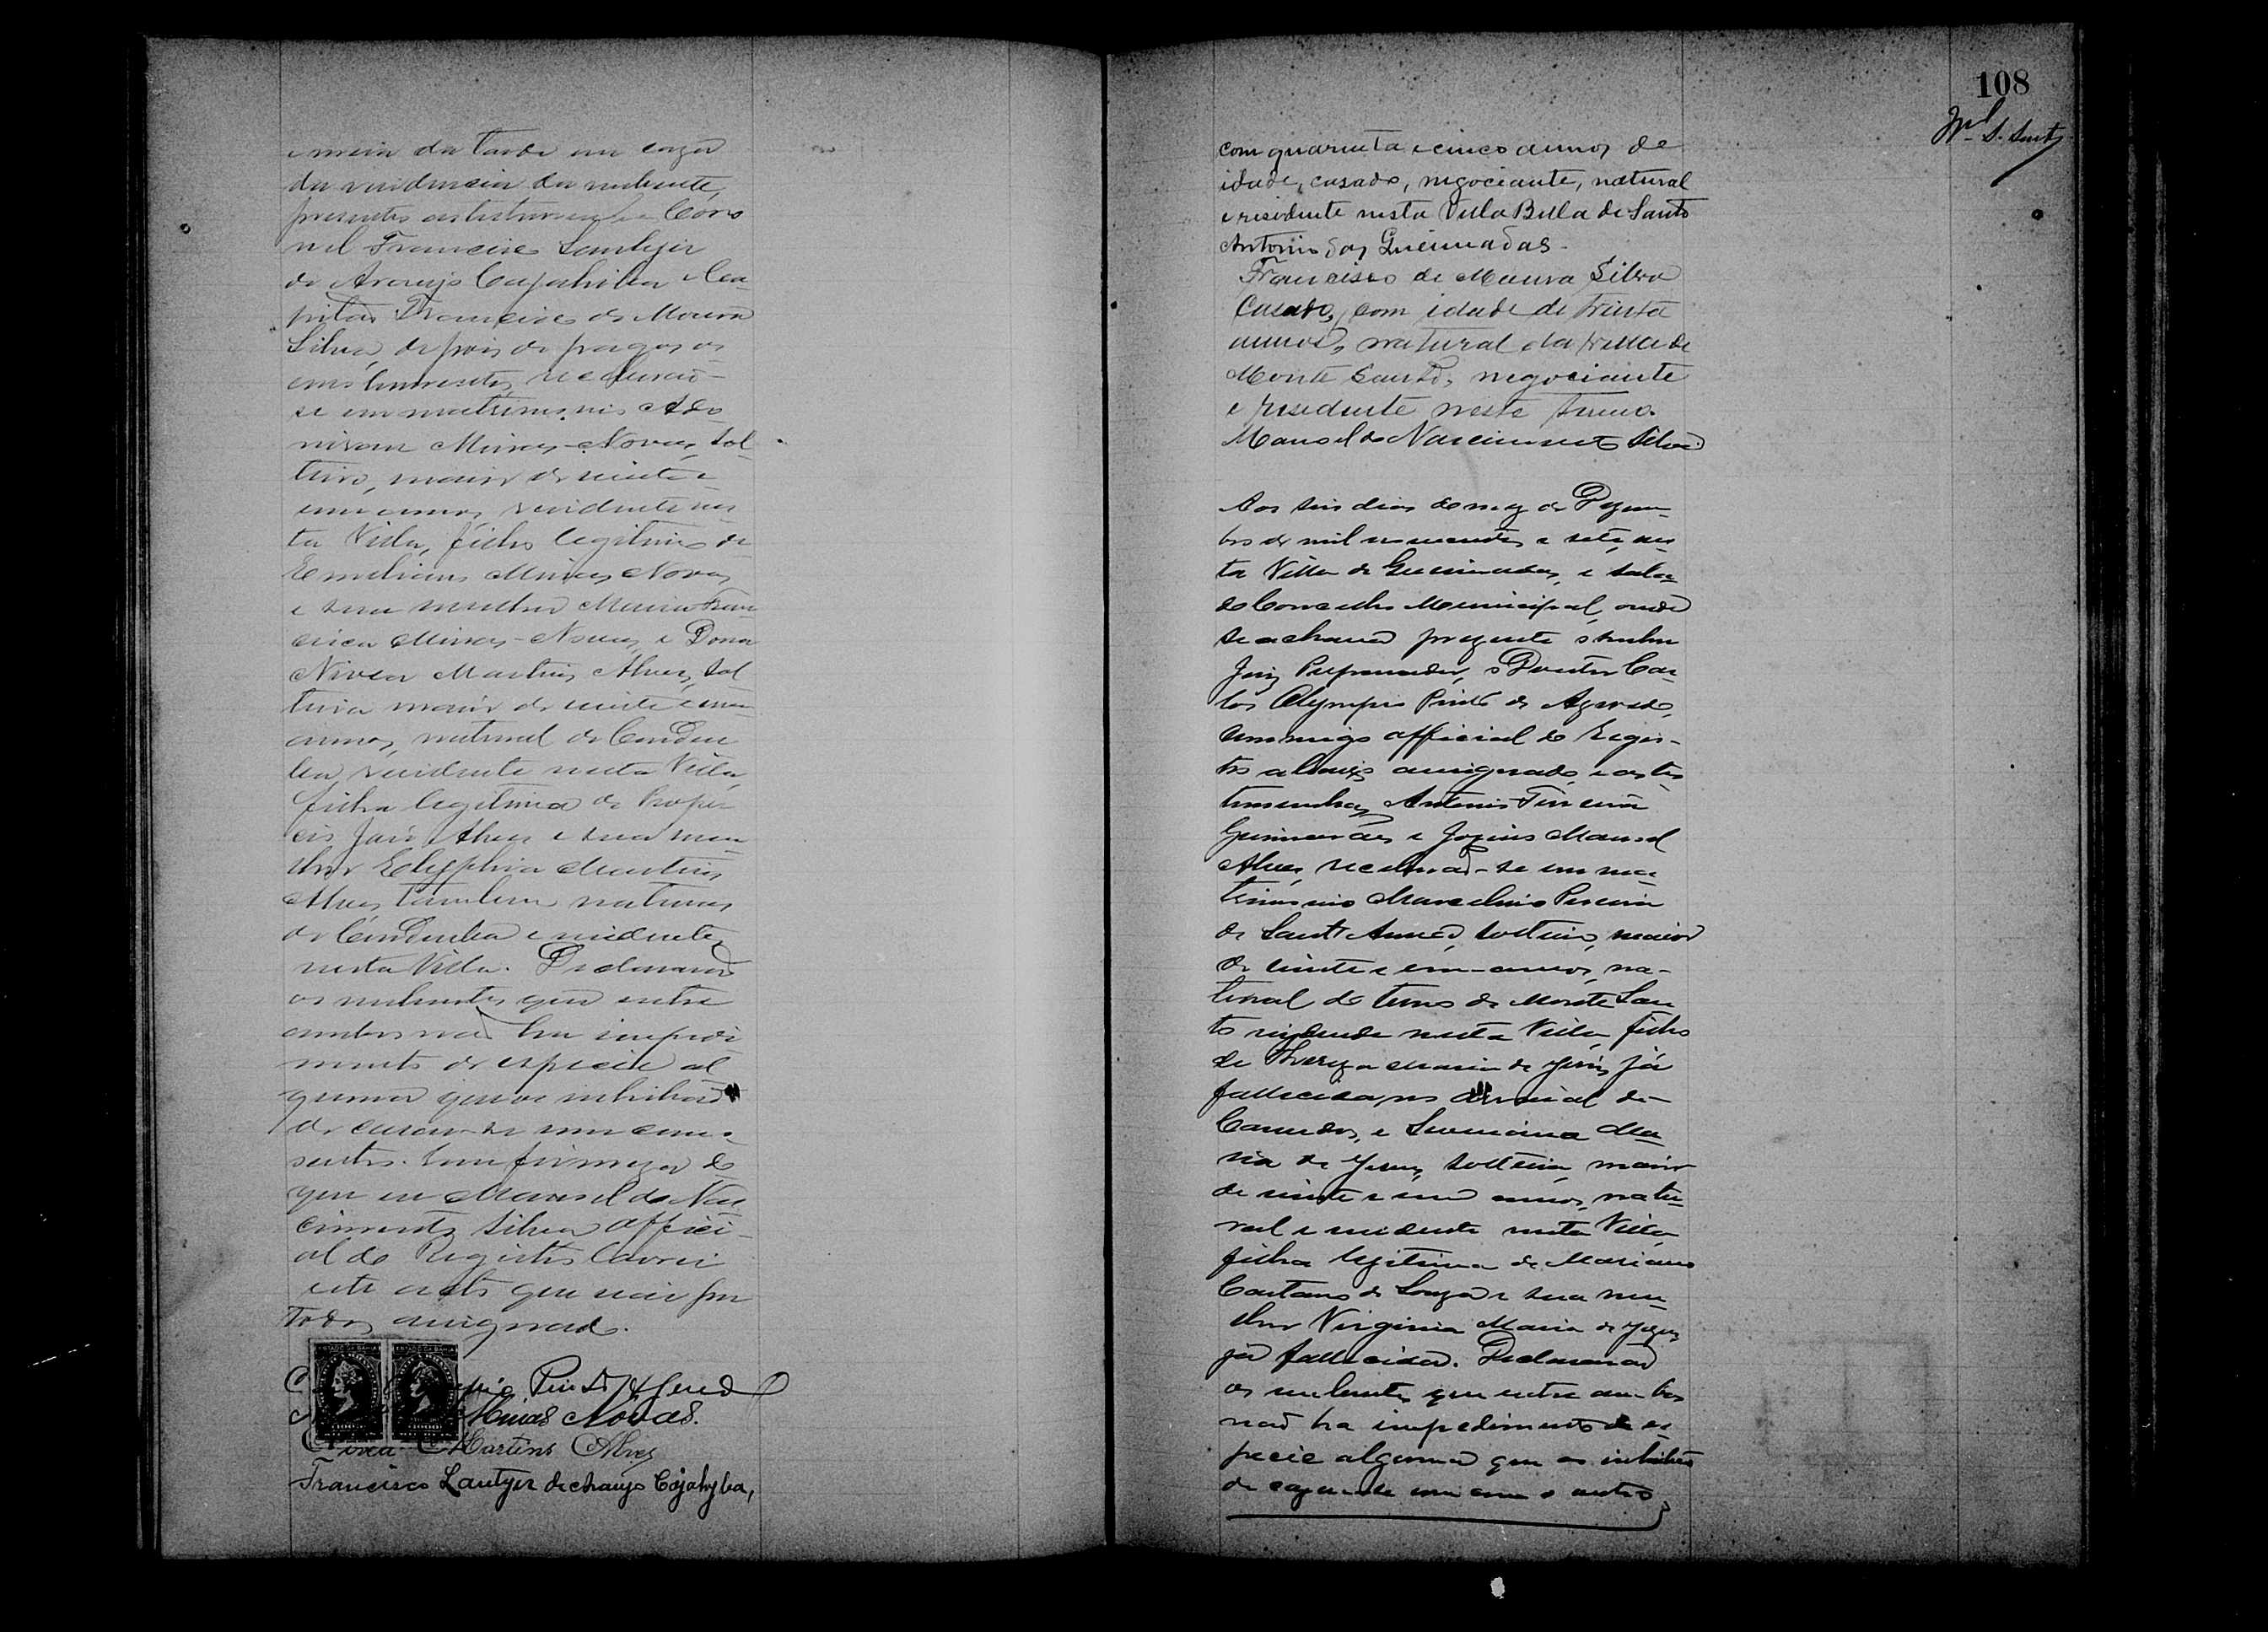 e meia da tarde em caza
da residencia da nubente,
presentes as testemunhas Coro
nel Francisco Lantyer
de Araujo Cajahiba e Ca
pitão Francisco de Moura
Silva, depois de pagos os
emolumentos, receberão-
se em matrimonio Ado
niram Minas-Novas, sol
teiro, maior de vinte e
um annos, residente nes
ta Villa, filho legitimo de
Emiliano Minas Novas
e sua mulher Maria Fran
cisca Minas-Novas, e Dona
Nivea Martins Alves, sol
teira maior de vinte e um
annos, natural do Conde
residente nesta Villa,
filha legitima de
José Alves e sua mu
lher Martins
Alves tambem naturaes
do e residentes
nesta Villa. Declararão
os nubentes que entre
ambos não ha impedi
mento de especie al
guma que os inhibão
de casar-se um com o
outro. Em firmeza do
que eu Manoel do Nas
cimento Silva Offici-
al do Registro lavrei
este acto que vai por
todos assignado.
Pinto Azevedo
Minas Novas.
Nivea Martins Alves
Francisco Lantyer de Araujo Cajahyba,
108
com quarenta e cinco annos de
idade, casado, negociante, natural
e residente nesta Villa Bella de Santo
Antonio das Queimadas.
Francisco de Moura Silva
Casado, com idade de trinta
annos, natural da villa de
Monte Santo, negociante
e residente neste termo.
Manoel do Nascimento Silva
Aos seis dias do mez de Dezem-
bro de mil novecentos e sete, nes-
ta Villa de Queimadas, e sala
do Concelho Municipal, onde
se achava prezente o senhor
Juiz Preparador, o Doutor Car-
los Olympio Pinto de Azevedo,
commigo official do Regis-
tro abaixo assignado, e as tes
temunhas Antonio Ferreira
Guimarães e Jozino Manoel
Alves, receberão-se em ma-
trimonio Marcelino Pereira
de Sant'Anna, solteiro, maior
de vinte e um annos, na-
tural do termo de Monte San
to rezidende nesta Villa, filho
de Thereza Maria de Jesus, já
fallecida no arraial de
Canudos, e Maria
de Jesus, solteira maior
de vinte e um annos, natu-
ral e residente nesta Villa
filha legitima de Mariano
Caetano de Souza e sua mu-
lher Virginia Maria de Jezus
já fallecida. Declararão
os nubentes que entre ambos
não ha impedimento de es-
pecie alguma que os inhibão
de cazar-se um com o outro